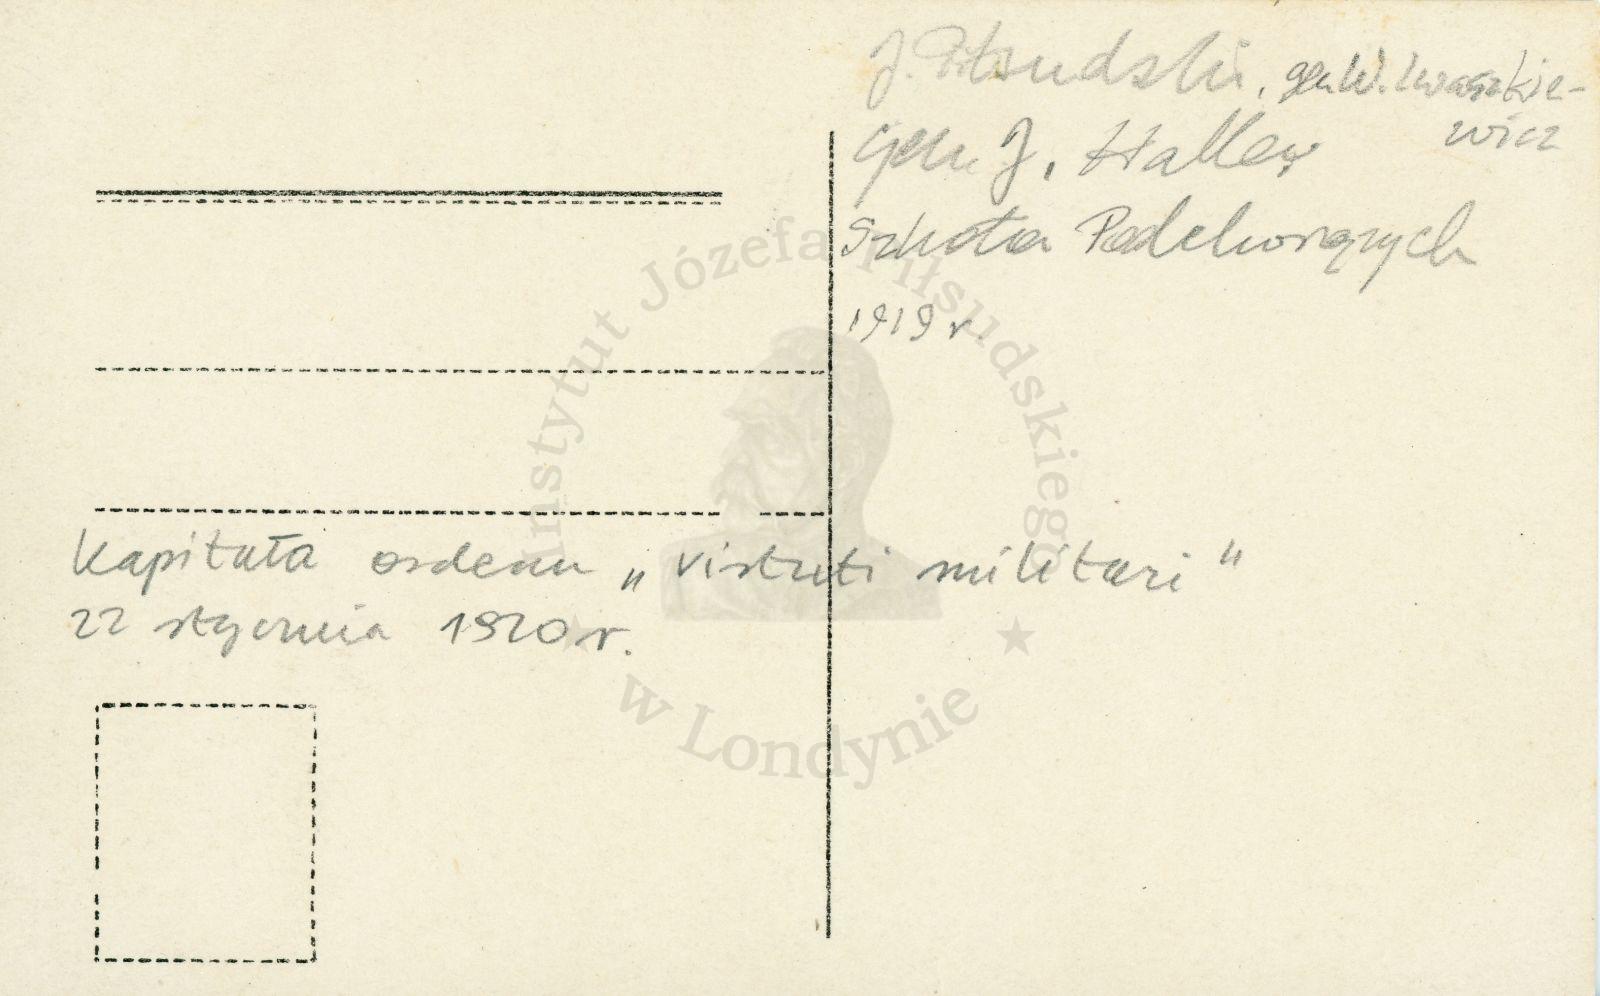 J. Piłsudski, gen. W. Iwaszkie-
wicz
Gen. J. Haller
Szkoła Podchorążych
1919 r.
Kapituła orderu „Virtuti militari"
22 stycznia 1920 r.
Instytut Józefa Piłsudskiego
w Londynie